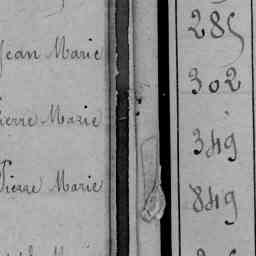 285
Jean Marie
302
Pierre Marie
349
Pierre Marie
849